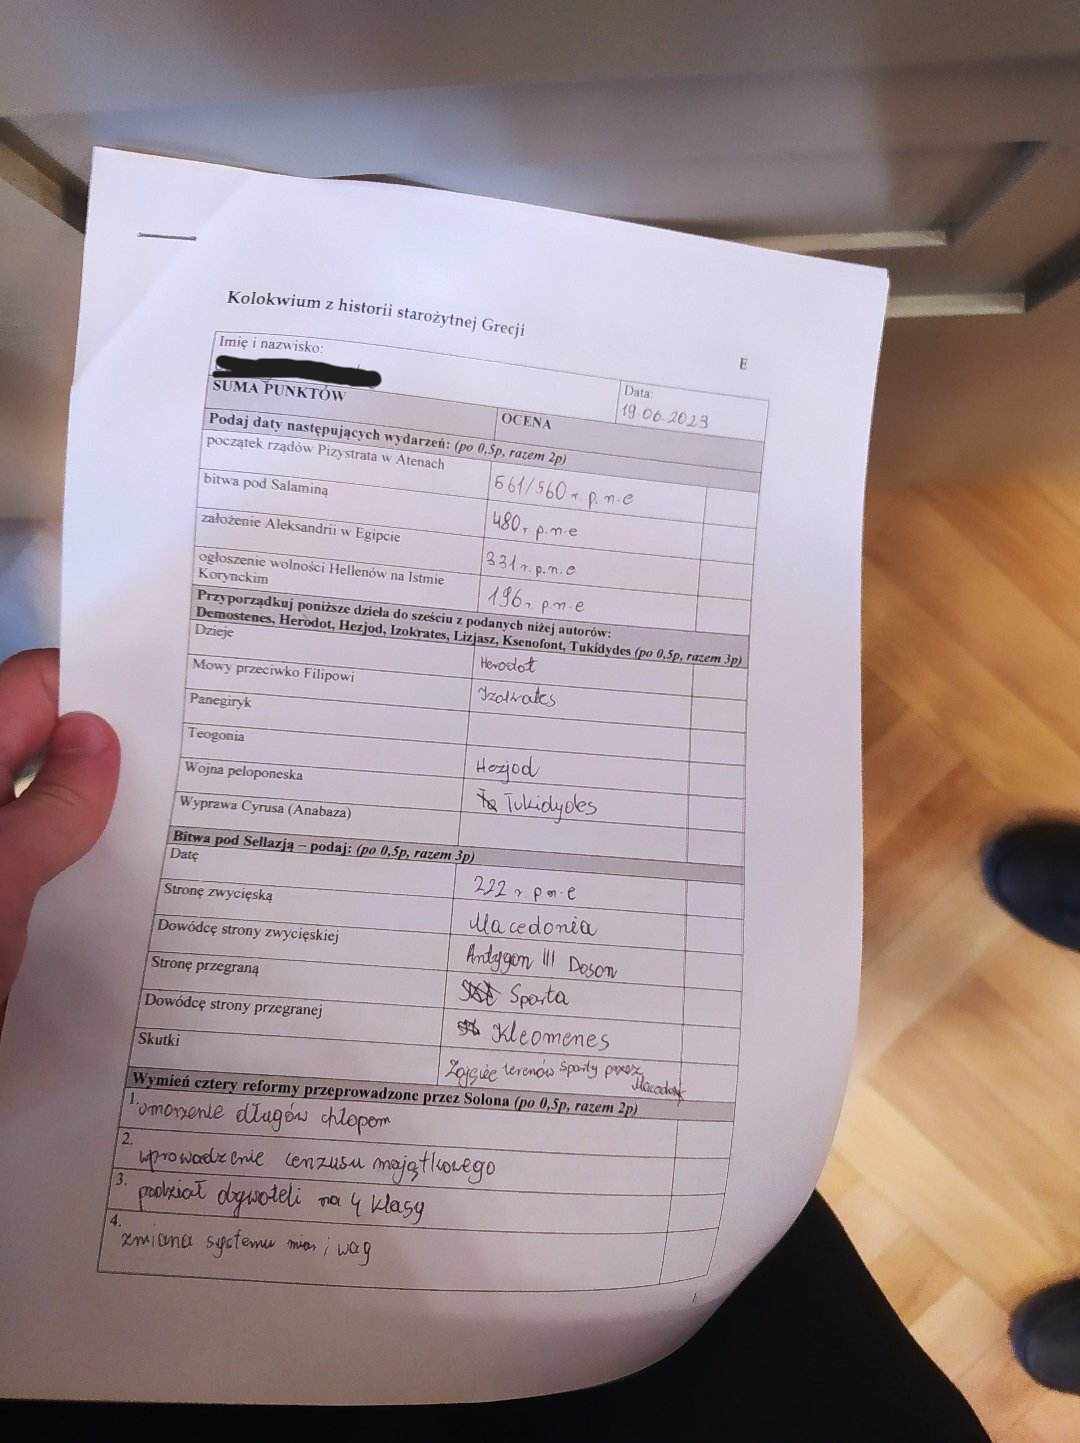 Kolokwium z historii starożytnej Grecji
E
Imię i nazwisko:
Data:
19.06.2023
SUMA PUNKTÓW
OCENA
Podaj daty następujących wydarzeń: (po 0,5p, razem 2p)
początek rządów Pizystrata w Atenach
561/560 r. p.n.e
bitwa pod Salaminą
480r p.n.e
założenie Aleksandrii w Egipcie
331 r. p.n.e
ogłoszenie wolności Hellenów na Istmie
Korynckim
196r p.n.e
Przyporządkuj poniższe dzieła do sześciu z podanych niżej autorów:
Demostenes, Herodot, Hezjod, Izokrates, Lizjasz, Ksenofont, Tukidydes (po 0,5p, razem 3p)
Dzieje
Herodot
Mowy przeciwko Filipowi
Izokrates
Panegiryk
Teogonia
Hezjod
Wojna peloponeska
Tukidydes
Wyprawa Cyrusa (Anabaza)
Bitwa pod Sellazją – podaj: (po 0,5p, razem 3p)
Datę
222 r p.n.e
Stronę zwycięską
Macedonia
Dowódcę strony zwycięskiej
Antygon III Doson
Stronę przegraną
Sparta
Dowódcę strony przegranej
Kleomenes
Skutki
Zajęcie terenów Sparty przez
Wymień cztery reformy przeprowadzone przez Solona (po 0,5p, razem 2p)
1. umorzenie długów chłopom
2. wprowadzenie cenzusu majątkowego
3. podział obywateli na 4 klasy
4. zmiana systemu miar i wag
1